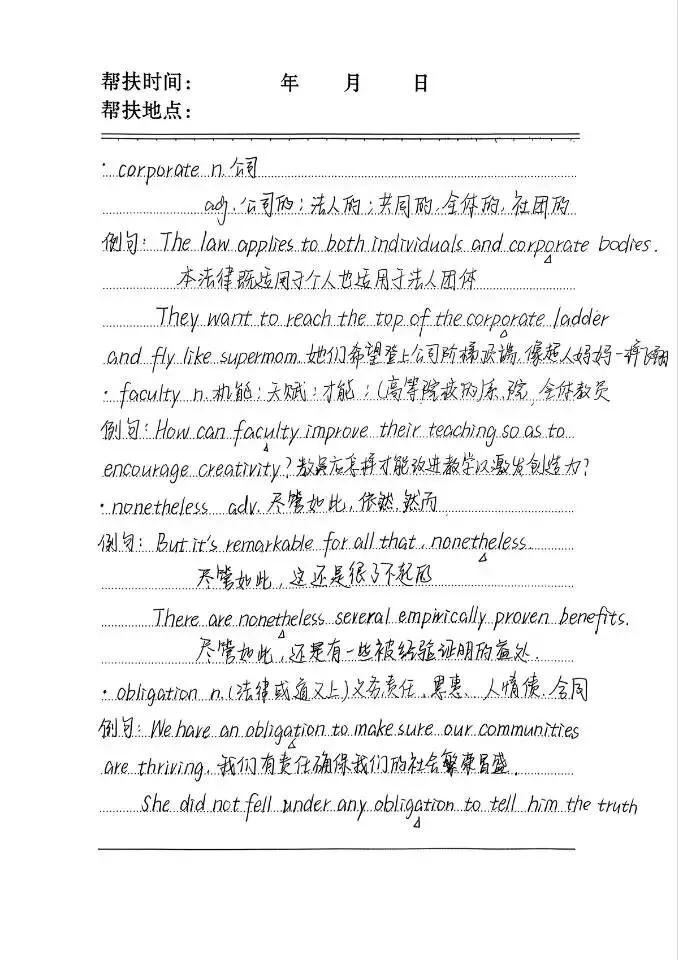 帮扶时间： 年 月 日
帮扶地点：
· corporate n.公司
adj.公司的；法人的；共同的，全体的，社团的
例句：The law applies to both individuals and corporate bodies.
本法律既适用于个人也适用于法人团体
They want to reach the top of the corporate ladder
and fly like supermom.她们希望登上公司阶梯顶端，像超人妈妈一样飞翔
· faculty n.机能；天赋；才能；(高等院校的)系，院，全体教员
例句：How can faculty improve their teaching so as to
encourage creativity?教员应怎样才能改进教学以激发创造力？
· nonetheless adv.尽管如此，依然，然而
例句：But it's remarkable for all that, nonetheless.
尽管如此，这还是很了不起
There are nonetheless several empirically proven benefits.
尽管如此，还是有一些被经验证明的益处.
· obligation n.(法律或道义上)义务责任，恩惠，人情债，合同
例句：We have an obligation to make sure our communities
are thriving.我们有责任确保我们的社会繁荣昌盛.
She did not fell under any obligation to tell him the truth